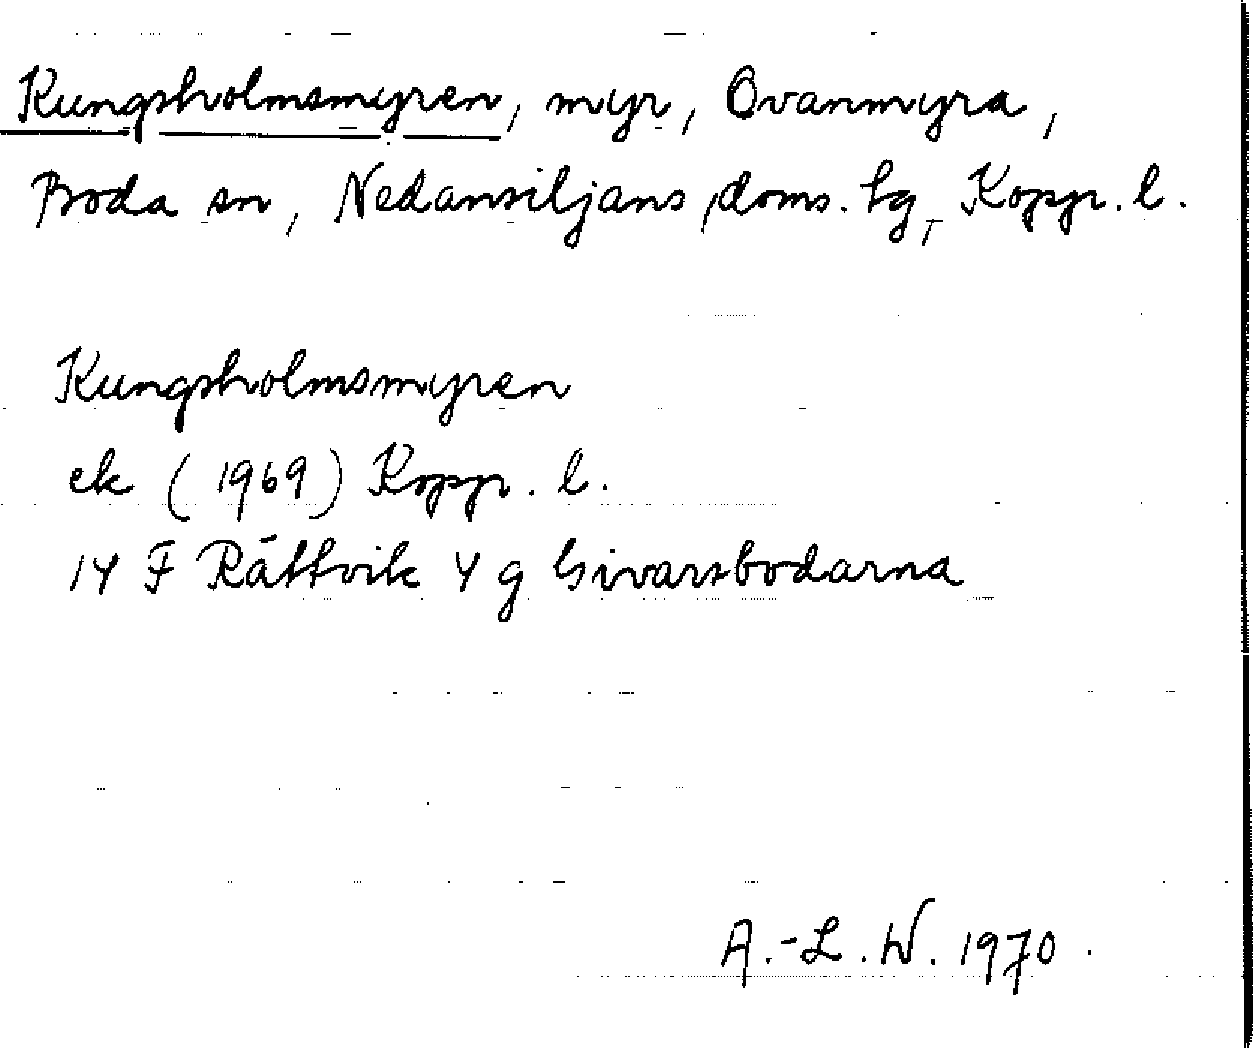 Kungsholmsmyren, myr, Ovanmyra,
Boda sn, Nedansiljans doms. tg, Kopp. l.
Kungsholmsmyren
ek (1969) Kopp. l.
14 F Rättvik 4 g Sivarsbodarna
A.-L. W. 1970.